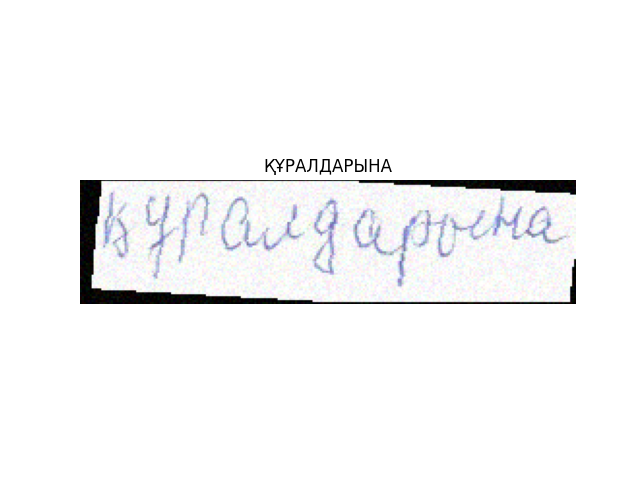 ҚҰРАЛДАРЫНА
құралдарына